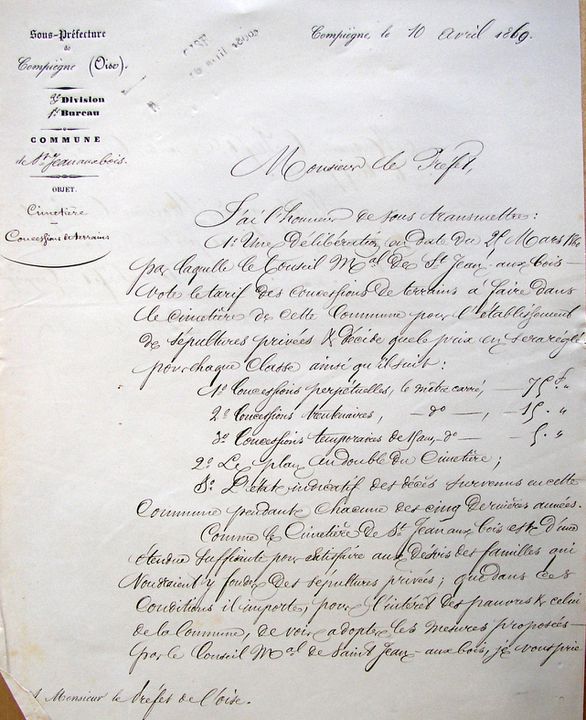 Sous-Préfecture
de
Compiègne (Oise).
3e Division
1er Bureau
COMMUNE
de St Jean aux bois.
OBJET.
Cimetière
Concessions de terrains
Compiègne, le 10 avril 1869.
Monsieur le Préfet,
J'ai l'honneur de vous transmettre :
1o Une délibération, en date du 28 Mars
par laquelle le Conseil Mal de St Jean-aux-bois
vote le tarif des concessions de terrains à faire dans
le cimetière de cette Commune pour l'établissement
de sépultures privées & décide que le prix en sera réglé
pour chaque classe ainsi qu'il suit :
1o Concessions perpétuelles, le mètre carré, — 75 f. „
2o Concessions trentenaires, — do —, — 15 . „
3o Concessions temporaires de 15 ans, — do — 5 . „
2o Le plan en double du Cimetière ;
3o L'état indicatif des décès survenus en cette
Commune pendant chacune des cinq dernières années.
Comme le Cimetière de St Jean aux bois est d'une
étendue suffisante pour satisfaire aux désirs des familles qui
voudraient y fonder des sépultures privées ; que dans ces
Conditions il importe, pour l'intérêt des pauvres & celui
de la Commune, de voir adopter les mesures proposées
par le Conseil Mal de Saint Jean-aux-bois, je vous prie
A Monsieur le Préfet de l'Oise.